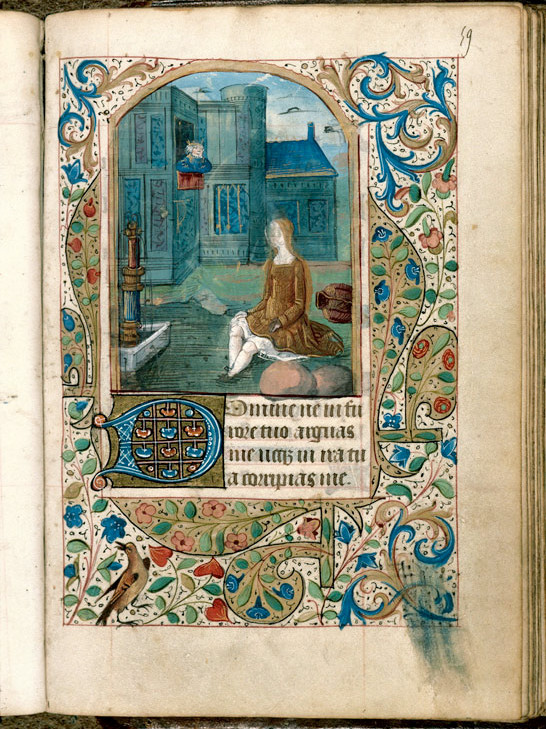 59
Domine ne in fu
rore tuo arguas
me neqz in ira tu
a corripias me.